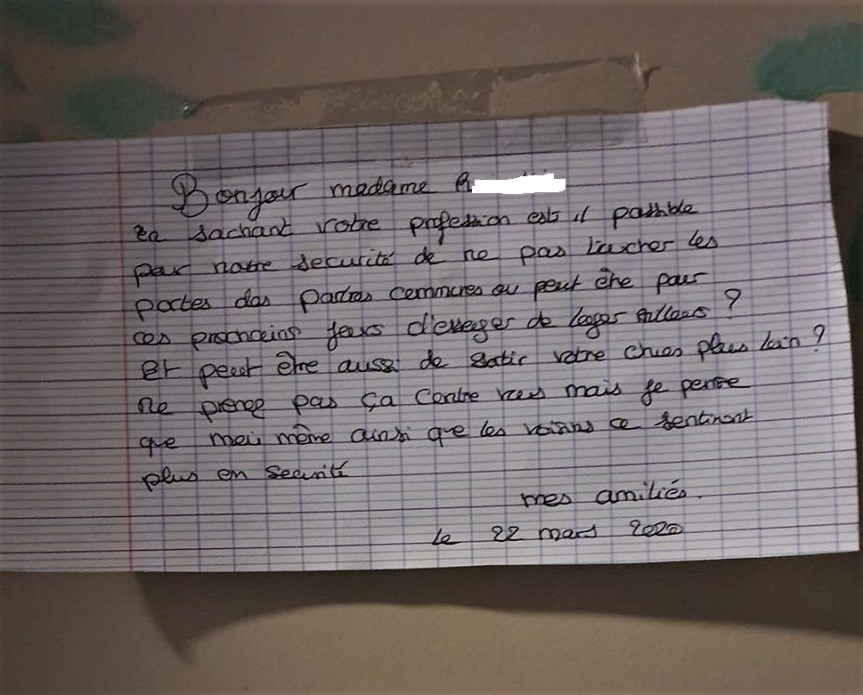 Bonjour madame B
en sachant votre profession est il possible
pour notre securité de ne pas toucher les
portes des parties communes ou peut être pour
ces prochains jours d'essayer de loger ailleurs ?
Et peut être aussi de sortir votre chien plus loin ?
ne prenez pas ça contre vous mais je pense
que moi même ainsi que les voisins ce sentiront
plus en securité
mes amitiés.
le 22 mars 2020